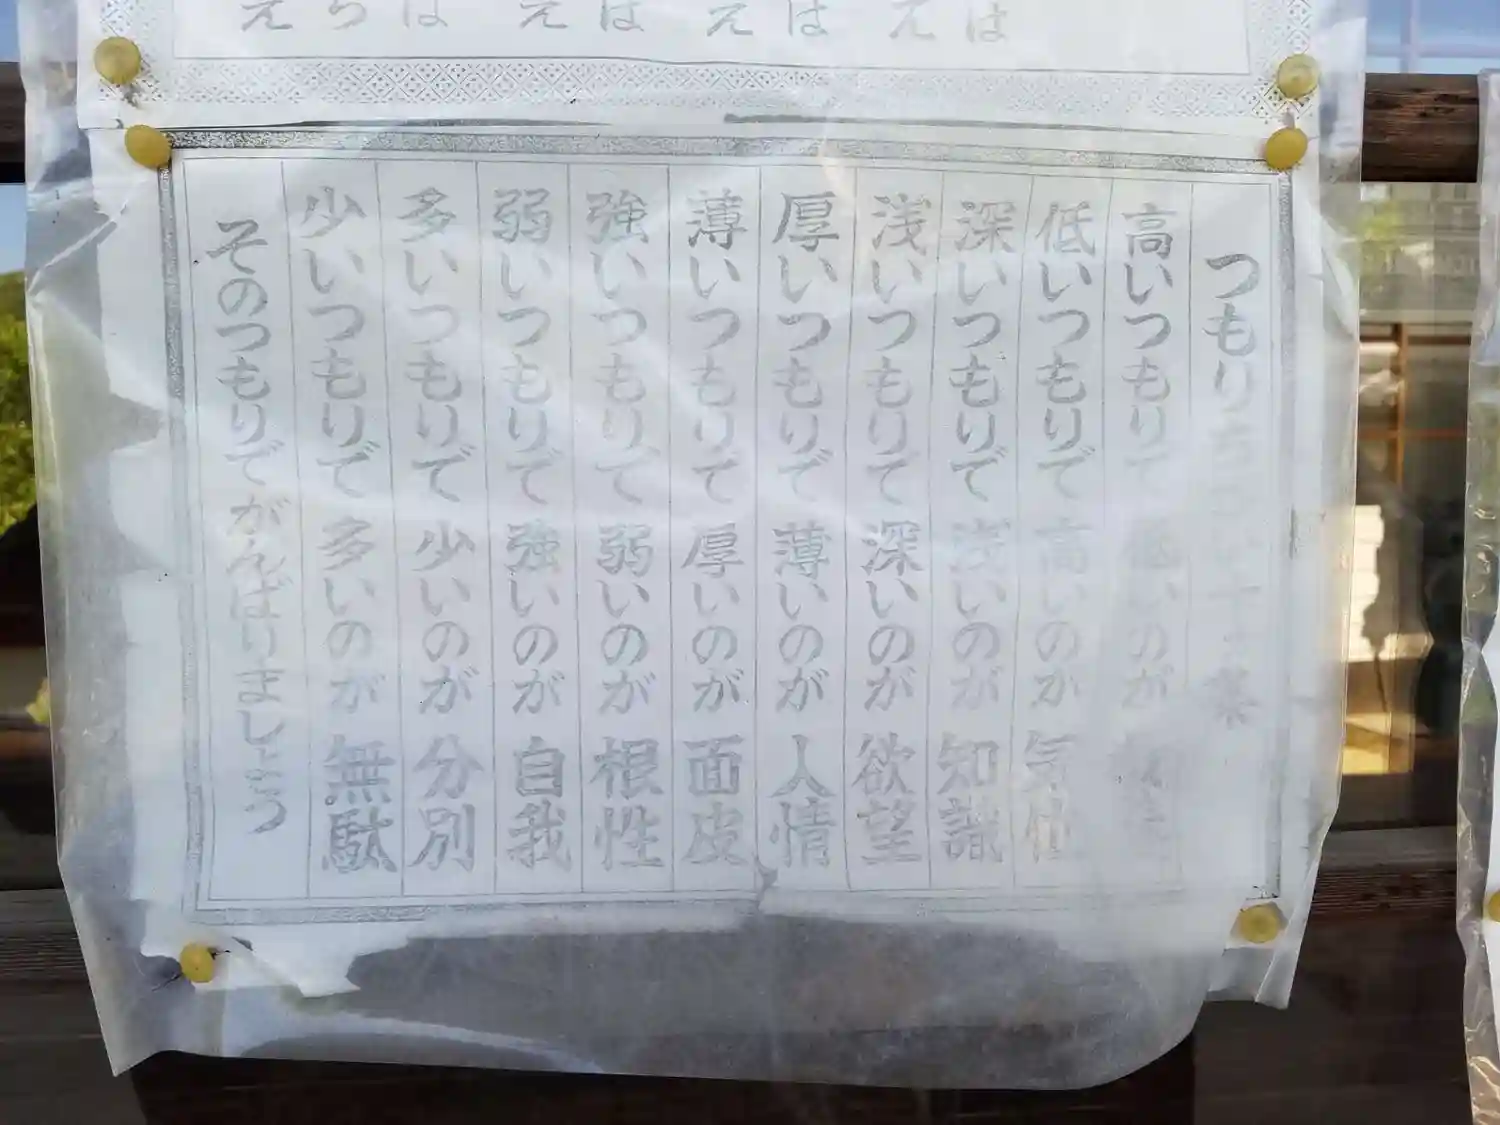 えらは　えは　えは　えは
つもりちがい十ヶ条
高いつもりで低いのが教養
低いつもりで高いのが気位
深いつもりで浅いのが知識
浅いつもりで深いのが欲望
厚いつもりで薄いのが人情
薄いつもりで厚いのが面皮
強いつもりで弱いのが根性
弱いつもりで強いのが自我
多いつもりで少いのが分別
少いつもりで多いのが無駄
そのつもりでがんばりましょう